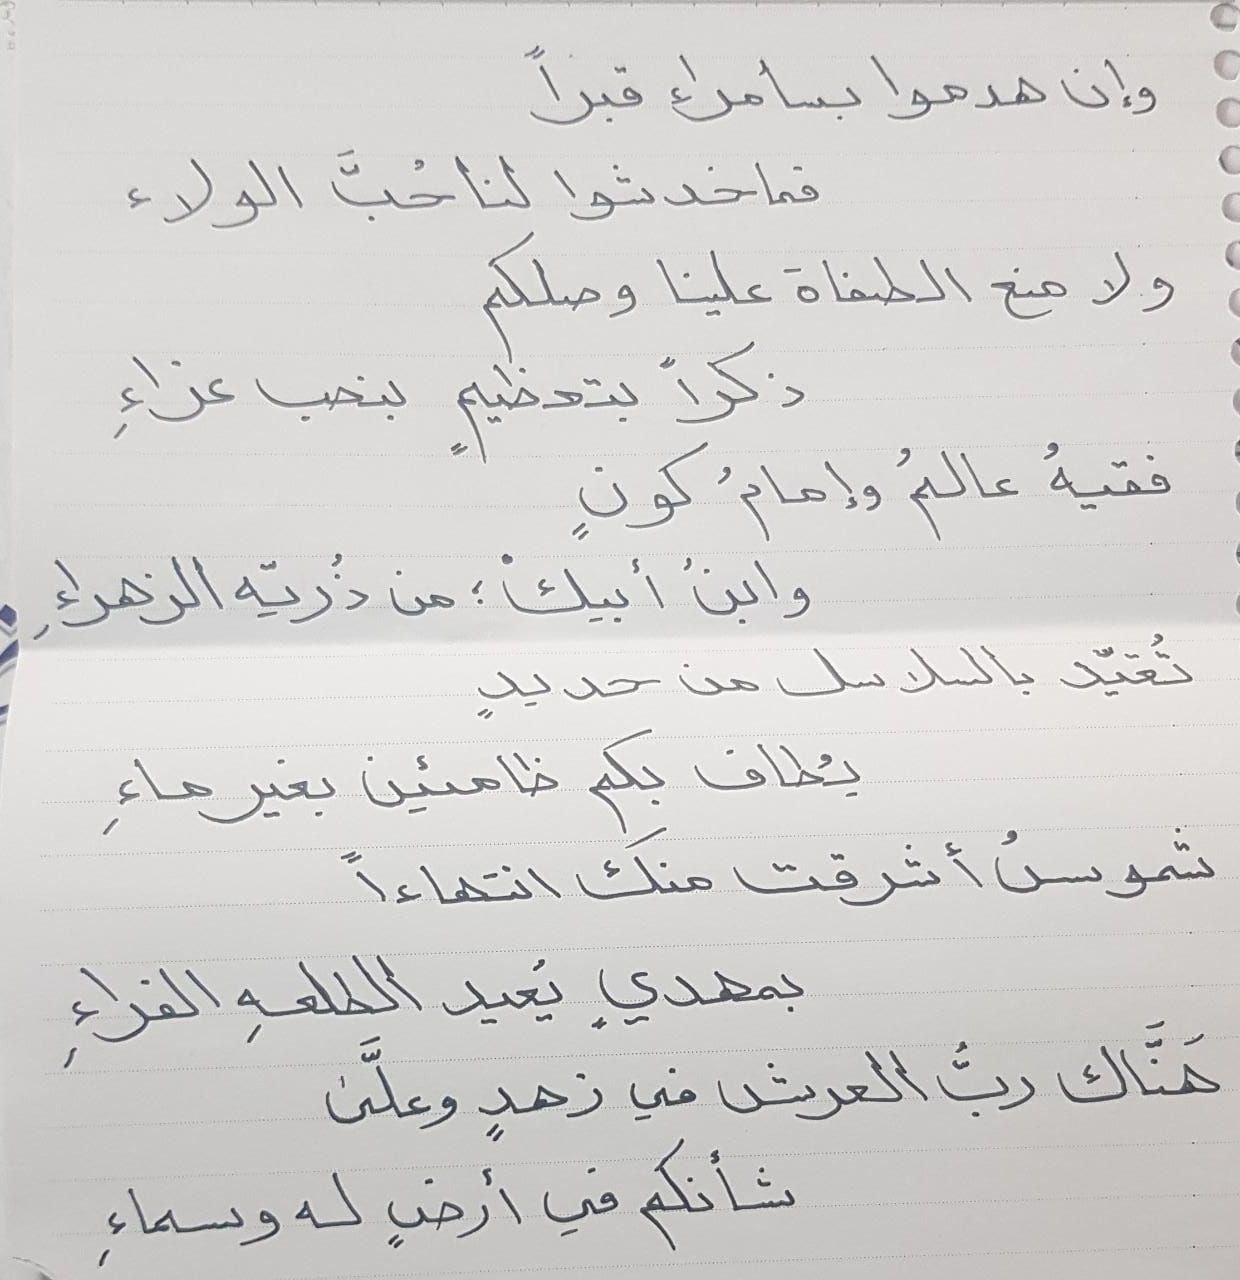 وإن هدموا بسامراء قبراً
فما خدشوا لنا حُبَّ الولاء
ولا منع الطغاة علينا وصلكم
ذكراً بتعظيمٍ بنصب عزاءِ
فقيهُ عالمُ وإمامُ كونٍ
وابنُ أبيكْ؛ من ذُريّه الزهراءِ
تُقيّد بالسلاسل من حديدٍ
يُطاف بكم ظامئين بغير ماءِ
شموسُ أشرقت منكَ انتهاءاً
بمهديٍ يُعيد الطلعهِ الغراءِ
هَنَّاك ربُّ العرش في زهدٍ وعلَّى
شأنكم في أرضٍ له وسماءِ